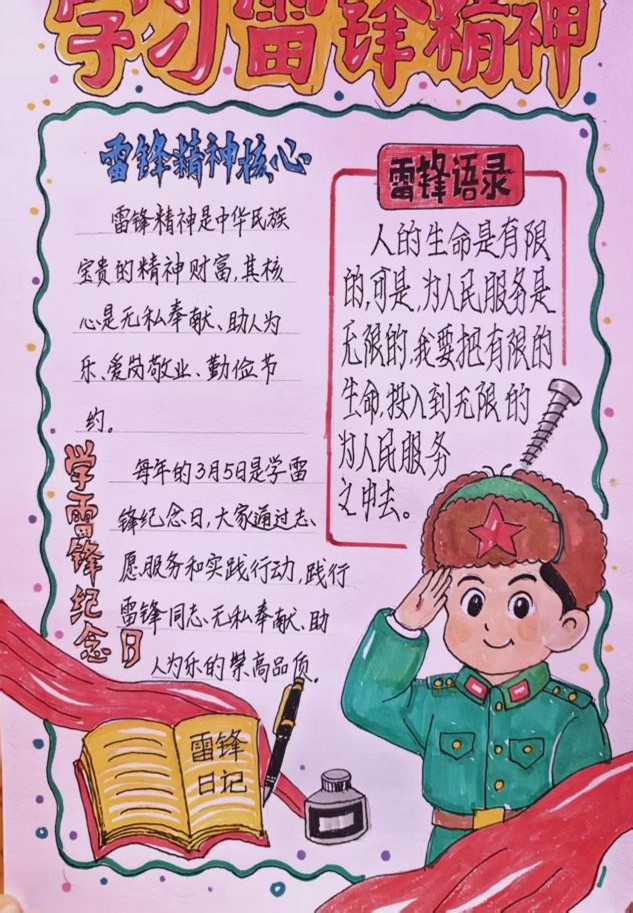 学习雷锋精神
雷锋精神核心
雷锋精神是中华民族
宝贵的精神财富,其核
心是无私奉献、助人为
乐、爱岗敬业、勤俭节
约。
雷锋语录
人的生命是有限
的,可是,为人民服务是
无限的,我要把有限的
生命,投入到无限的
为人民服务
之中去。
学雷锋纪念日
每年的3月5日是学雷
锋纪念日,大家通过志、
愿服务和实践行动,践行
雷锋同志、无私奉献、助
人为乐的崇高品质。
雷锋
日记